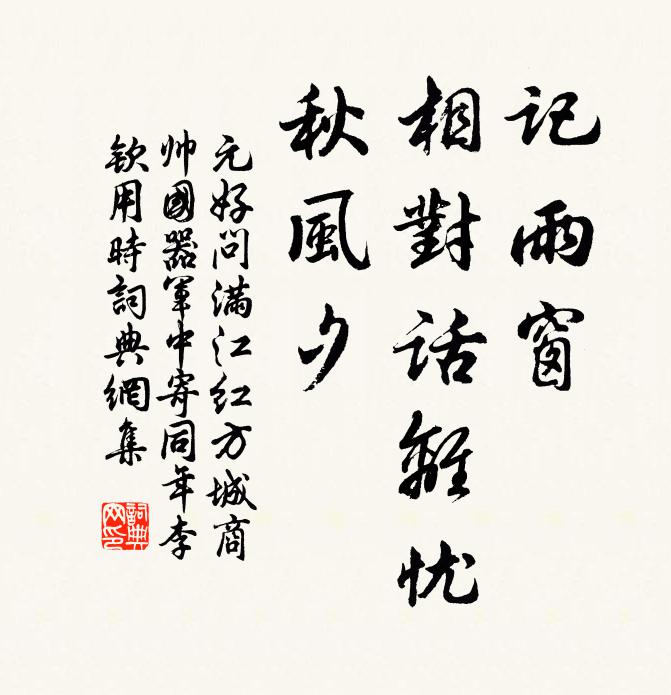 记雨窗
相對话離忧
秋風夕
元好问满江红方城商
帅國器軍中寄同年李
钦用時詞典網集
詞典
网印